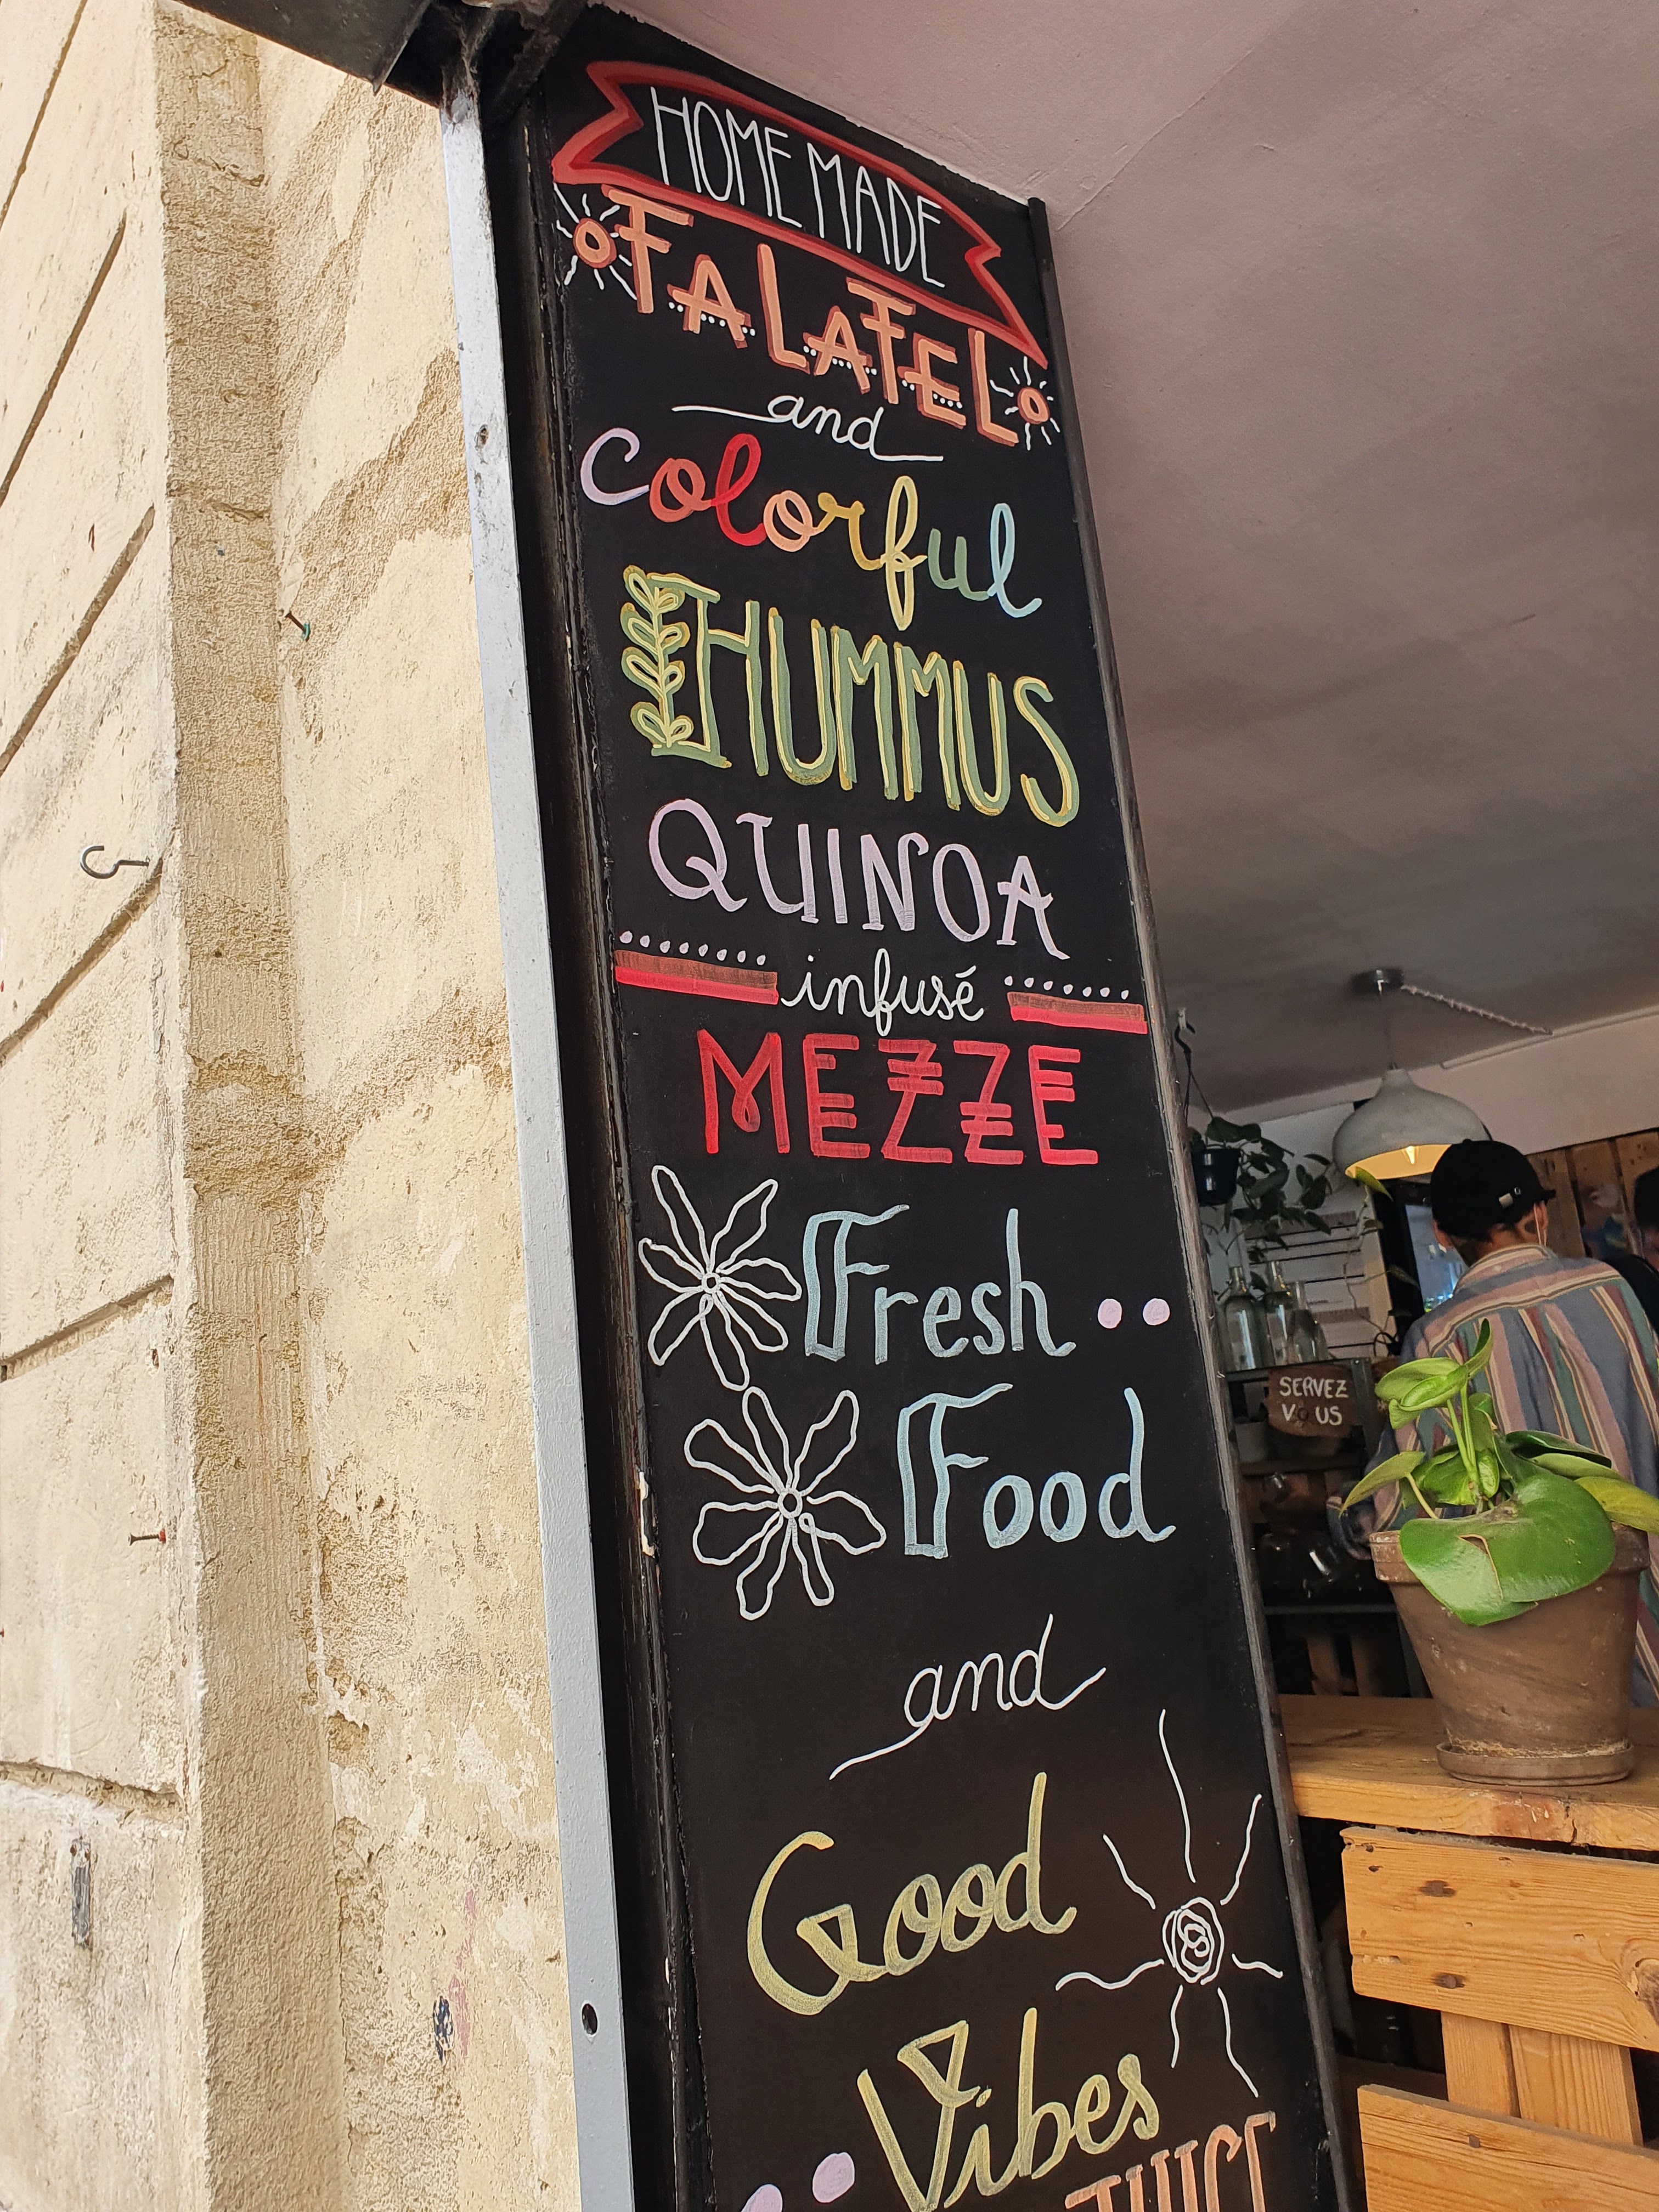 HOMEMADE
FALAFEL
and
colorful
HUMMUS
QUINOA
infusé
MEZZE
Fresh
Food
and
Good
Vibes
JUICE
SERVEZ
VOUS